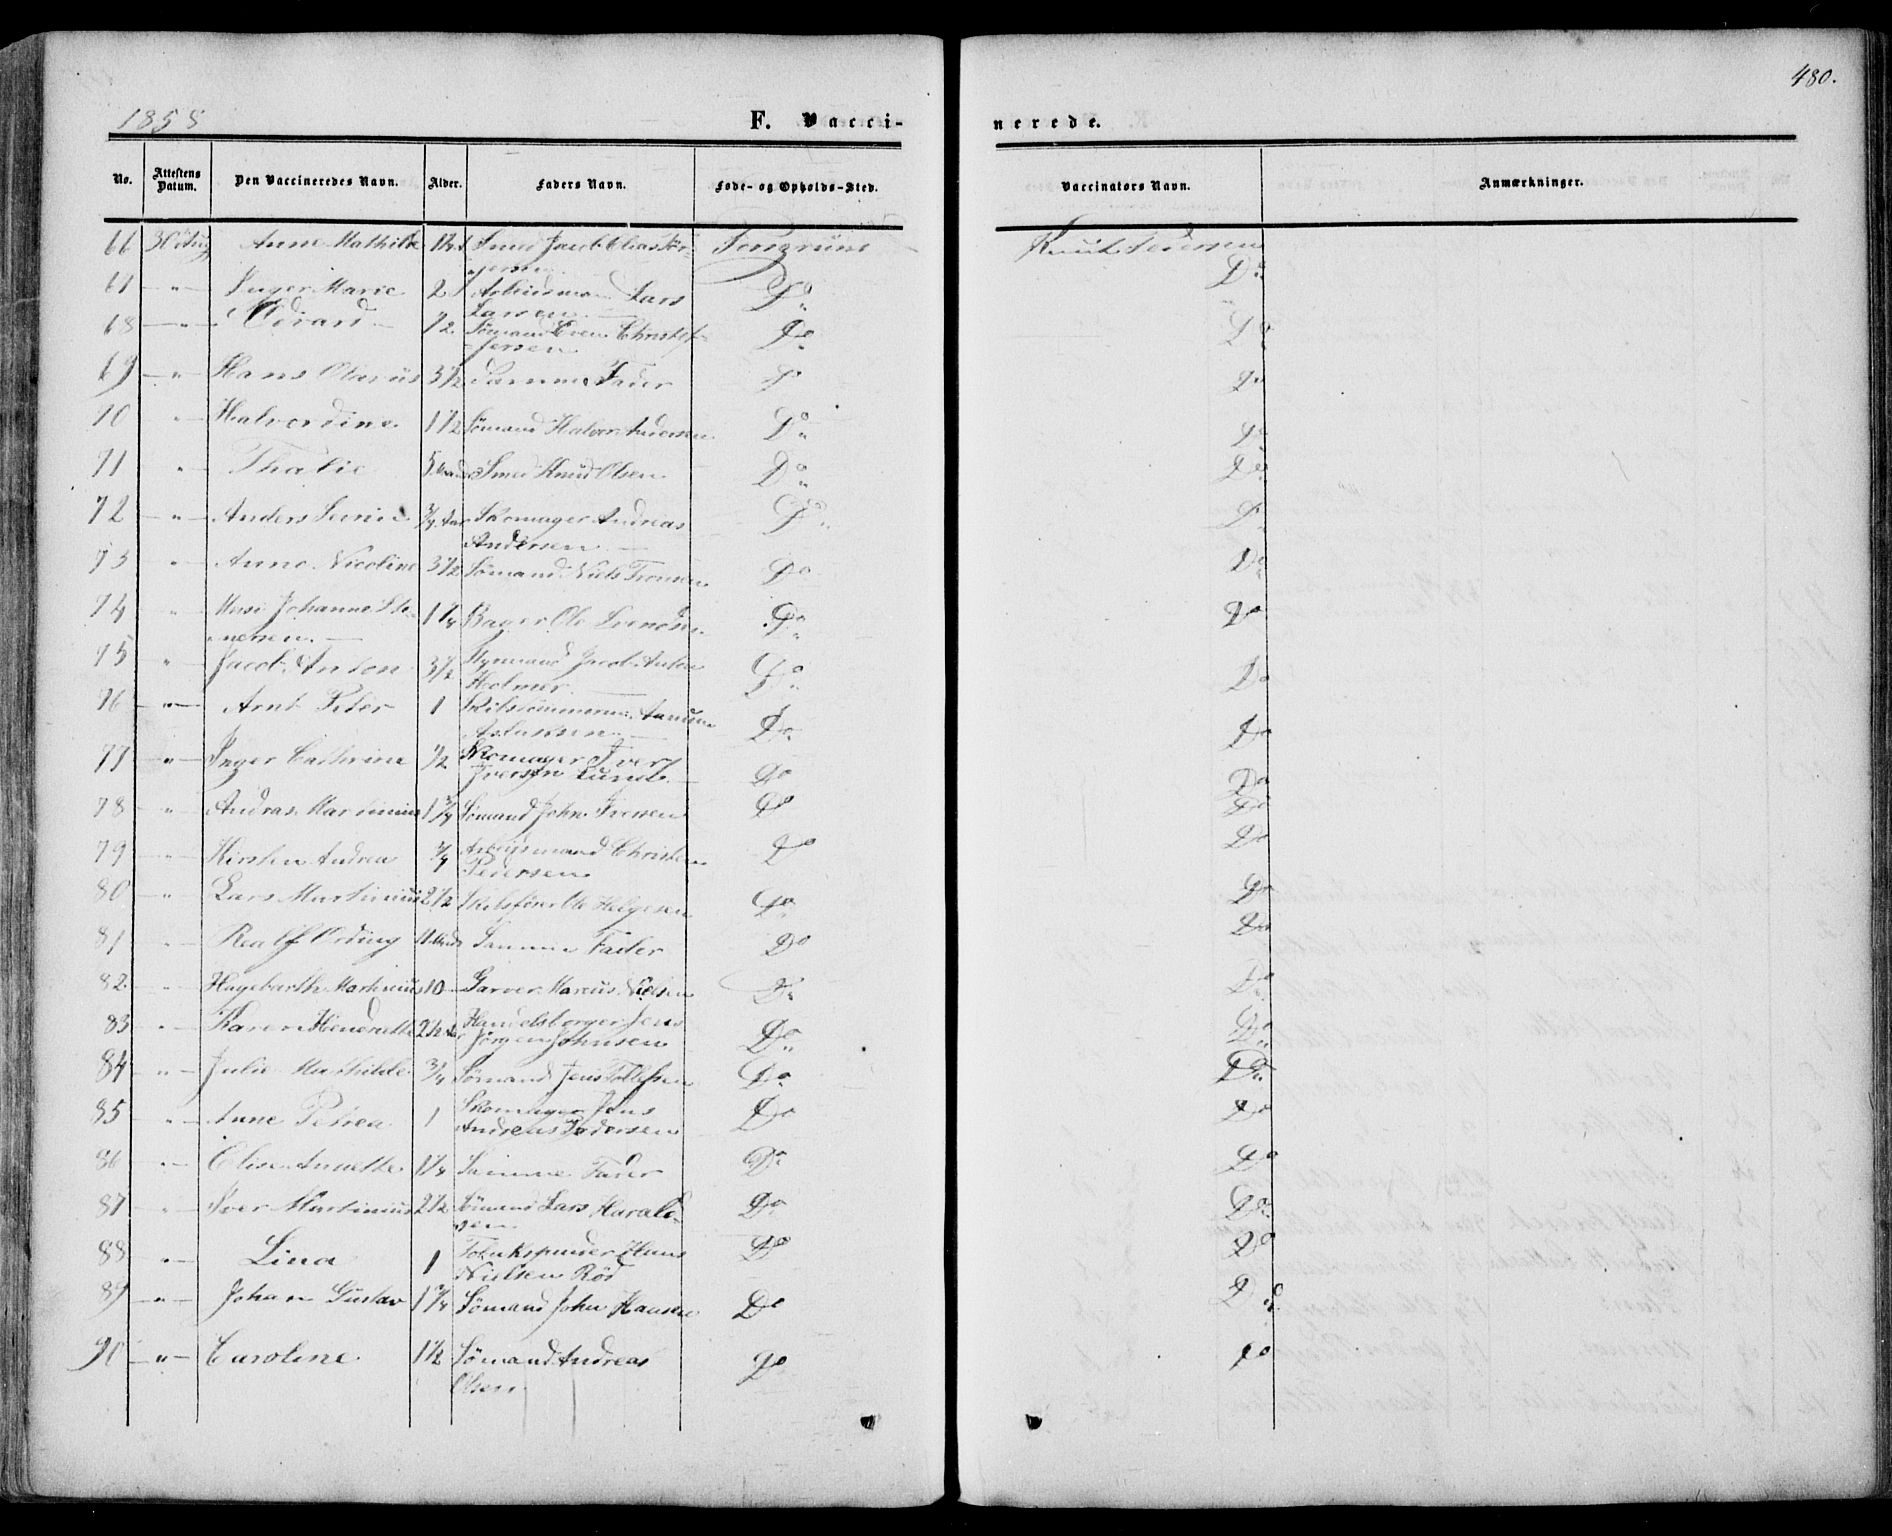 480.
1858 F. Vacci- nerede.
No. Attestens Datum. Den Vaccineredes Navn. Alder. Faders Navn. Føde- og Opholds-Sted. Vaccinators Navn. Anmærkninger.
66 30 Aug Anne Mathilde Smed Jacob Knud Pedersen
67 " Inger Marie 2 Arbeidsmand Lars Do Do
Larsen
68 " Edvard 1/2 Sømand Even Christof- Do Do
fersen
69 " Hans Olavus 3 1/2 Samme Fader Do Do
70 " Halvordine 1 1/2 Sømand Halvor Andersen Do Do
71 " Thalie 5 Smed Knud Olsen Do Do
72 " Anders 3/4 Aar Skomager Andreas Do Do
Andersen
73 " Anne Nicoline 3 1/2 Sømand Niels Do Do
74 " Johanne Ste- 1 1/4 Bager Ole Svendsen Do Do
nersen
75 " Jacob Anton 3 1/2 Styrmand Jacob Anton Do Do
Holmer
76 " Arnt Peter 1 Do Do
Aslaksen
77 " Inger Cathrine 1/2 Skomager Iver Do Do
Iversen Lund
78 " Andras Martinius 1 3/4 Sømand John Do Do
79 " Kirsten Andrea 3/4 Arbeidsmand Christen Do Do
Pedersen
80 " Lars Martinius 2 1/2 Skibsfører Ole Helgesen Do Do
81 " Realf Ording 11 Samme Fader Do Do
82 " Hagebarth Martinius 10 Garver Marcus Nielsen Do Do
83 " Karen Hendrette 2 1/2 Handelsborger Jens Do Do
Jørgen Johnsen
84 " Julie Mathilde 3/4 Sømand Jens Tollefsen Do Do
85 " Anne Petrea 1 Skomager Jens Do Do
Andreas Pedersen
86 " Elise Annette 1 1/4 Samme Fader Do Do
87 " Iver Martinius 2 1/2 Sømand Lars Harald- Do Do
sen
88 " Lina 1 Tobakspinder Hans Do Do
Nielsen Röd
89 " Johan Gustav 1 3/4 Sømand John Hansen Do Do
90 " Caroline 1 1/2 Sømand Andreas Do Do
Olsen